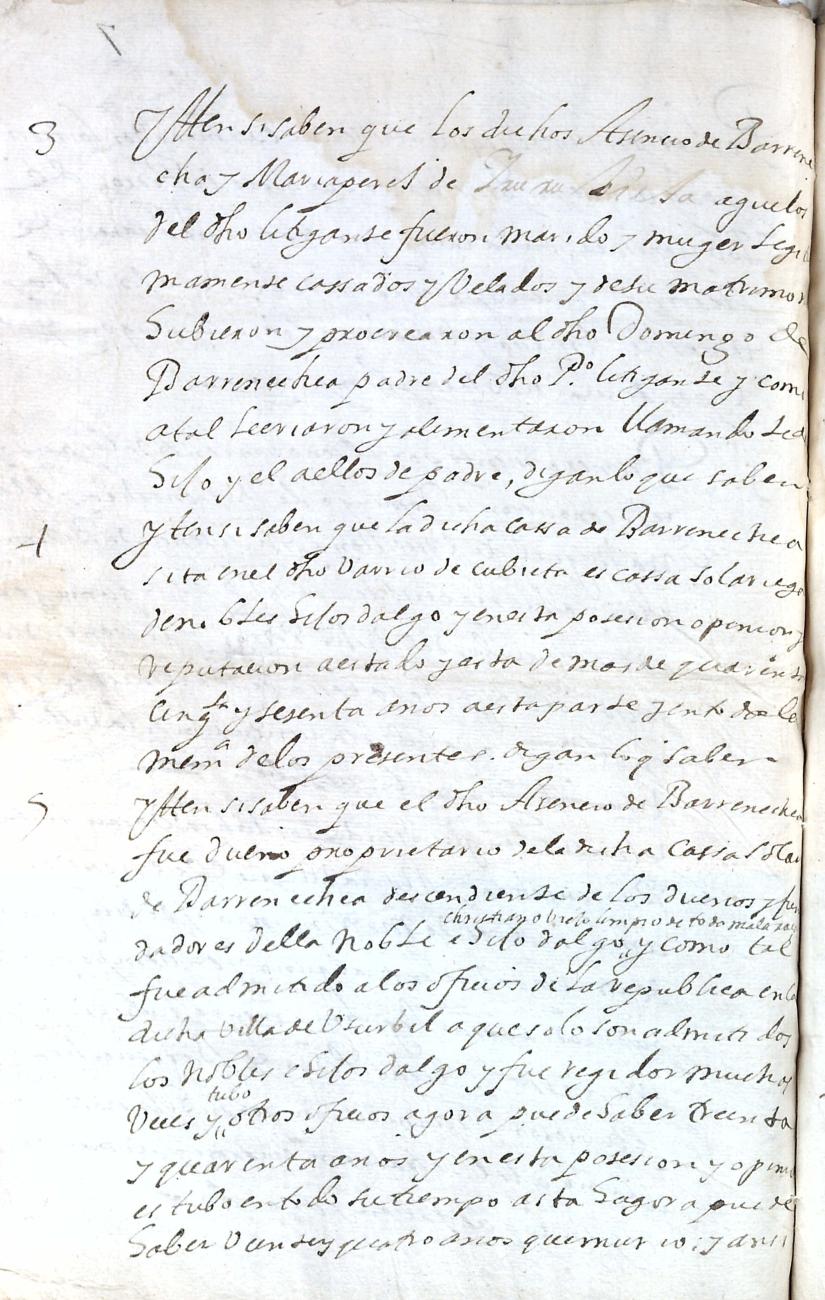 3 Ytten si saben que los dichos Asencio de Barrene
cha y Maria perez de aguelos
del dho litigante fueron marido y muger legi
mamense cassados y Velados y de su matrimon
hubieron y procrearon al dho Domingo de
Barrenechea padre del dho P.º litiganse y como
a tal le criaron y alimentaron llamando le a
hilo y el a ellos de padre, digan lo que saben
4 yten si saben que la dicha cassa de Barrenechea
sita en el dho varrio de cubieta es cassa solariega
de nobles hilos dalgo y en esta posesion opinion y
reputacion a estado y esta de mas de quarenta
cinqta y sesenta anos a esta parse y en todo le
memª de los presentes. digan lo q saben
5 Ytten si saben que el dho Asencio de Barrenechea
fue dueño proprietario de la dicha cassa solar
de Barrenechea descendiense de los duenos y fun
christiano viejo limpio de toda mala raza
dadores della Noble e hilo dalgo y como tal
fue admitido a los oficios de la republica en la
dicha villa de Usurbil a que solo son admitidos
los Nobles e hilos dalgo y fue regidor muchas
tubo
Veces y otros oficios agora puede haber treinta
y quarenta anos y en esta posesion y opini
estubo en todo su tiempo asta hagora puede
haber veinse y quatro anos que murio; y ansi